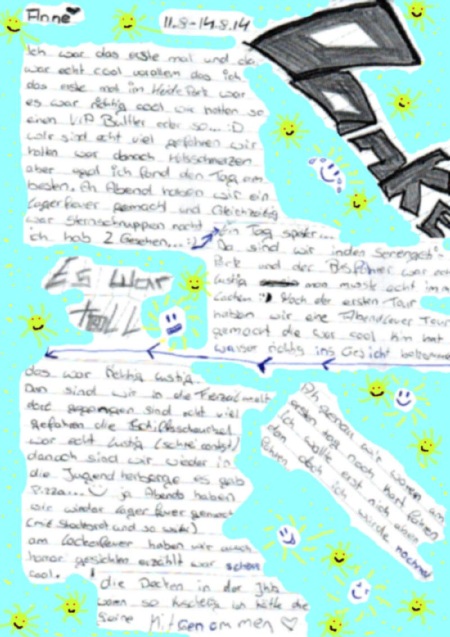 Anne
11.8-14.8.14
DANKE
Ich war das erste mal und da
war echt cool vorallem das ich
das erste mal im Heide Park war
es war richtig cool wir hatten so
einen VIP Buttler oder so... :D
wir sind echt viel gefahren wir
hatten zwar danach Halsschmerzen
aber egal ich fand den Tag am
besten. An Abend haben wir ein
Lagerfeuer gemacht und Gleichzeitig
war Sternschnuppen nacht
ich hab 2 Gesehen...
Ein Tag später...
Da sind wir in den Serengeti-
Park und der Busfahrer war echt
lustig man musste echt immer
Lachen :) Nach der ersten Tour
haben wir eine Abendteuer Tour
gemacht die war cool Kim hat
wasser richtig ins Gesicht bekommen
Es war
toll
das war Richtig Lustig.
Dan sind wir in die Freizeitwelt
dort gegangen sind echt viel
gefahren die
war echt Lustig
danach sind wir wieder in
die Jugendherberge es gab
Pizza... ja Abends haben
wir wieder Lagerfeuer gemacht
(mit Stockbrot und so weiter)
am Lagerfeuer haben wir auch
horror gesichten erzählt war schon
cool.
die Decken in der Jhb
waren so kuschelig ich hätte die
gerne Mitgenommen
Ah genau wir waren am
ersten Tag noch Kart fahren
Ich wollte erst nich aber
dan doch ich würde nochmal
fahren